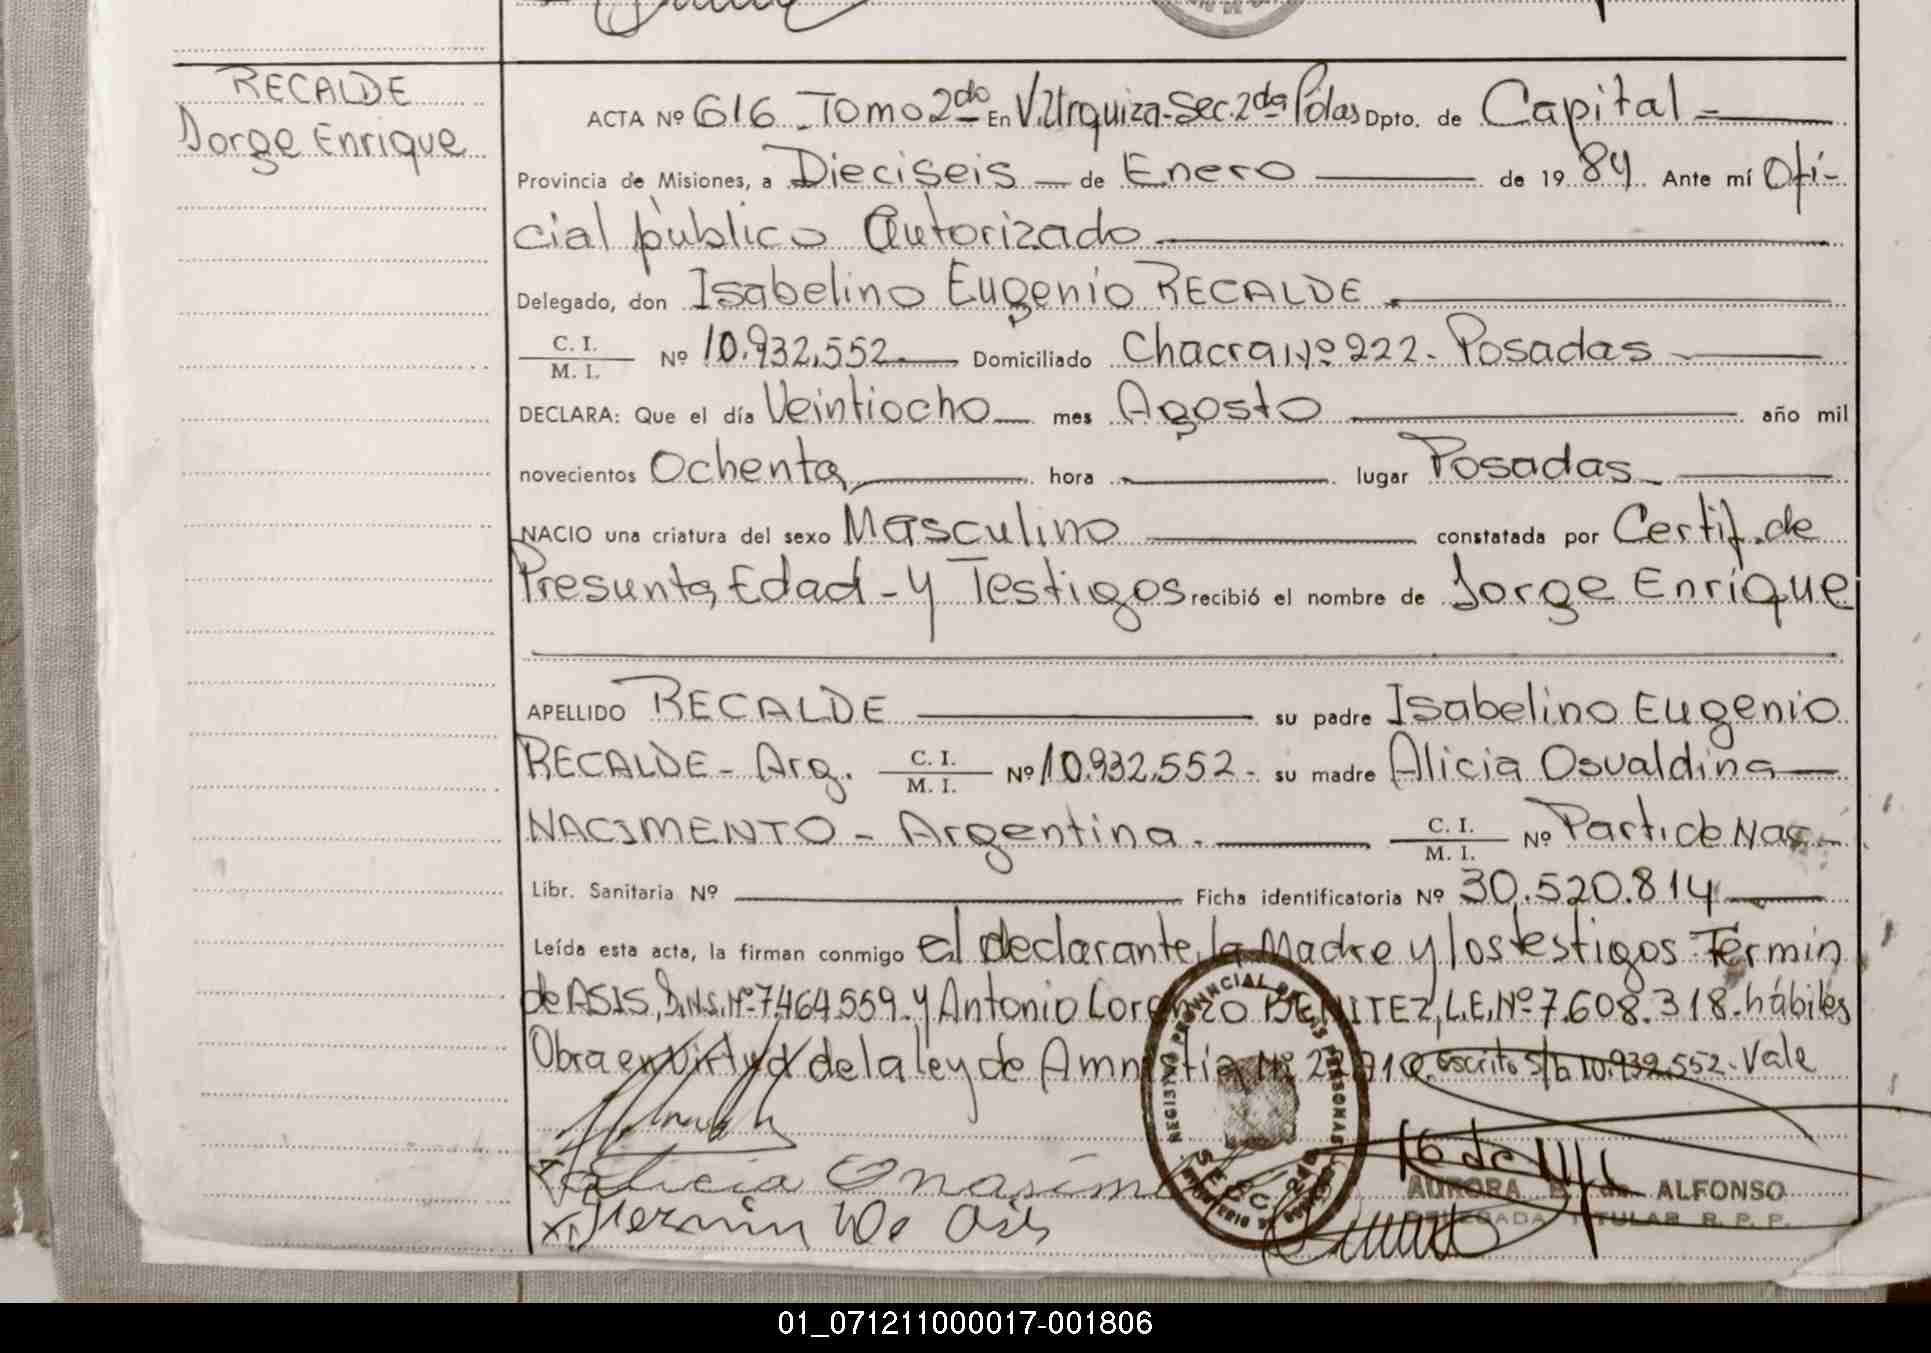 RECALDE
Jorge Enrique
ACTA Nº 616 - Tomo 2do En V. Urquiza-Sec. 2da Pdas Dpto. de Capital -
Provincia de Misiones, a Dieciseis - de Enero de 19 84 Ante mí Ofi-
cial público Autorizado
Delegado, don Isabelino Eugenio RECALDE.
C. I.
M. I.
Nº 10.932.552 - Domiciliado Chacra Nº 222 - Posadas -
DECLARA: Que el día Veintiocho - mes Agosto año mil
novecientos Ochenta, hora lugar Posadas -
NACIO una criatura del sexo Masculino constatada por Certif. de
Presunta Edad - y Testigos recibió el nombre de Jorge Enrique
APELLIDO RECALDE su padre Isabelino Eugenio
RECALDE - Arg. C. I. M. I. Nº 10.932.552 - su madre Alicia Osvaldina
NACIMENTO - Argentina. C. I. M. I. Nº Part. de Nac. -
Libr. Sanitaria Nº Ficha identificatoria Nº 30.520.814
Leída esta acta, la firman conmigo el declarante, la Madre y los testigos Fermin
de ASIS, Nº 7.464.559 - y Antonio Lorenzo BENITEZ, L.E. Nº 7.608.318 - hábiles
Obra en virtud de la ley de Amnistía Nº escrito s/b 10.932.552 - Vale
REGISTRO PROVINCIAL DE LAS PERSONAS
16 de
Alicia
AURORA ALFONSO
Fermin De Asis
DELEGADA TITULAR R. P. P.
01_071211000017-001806